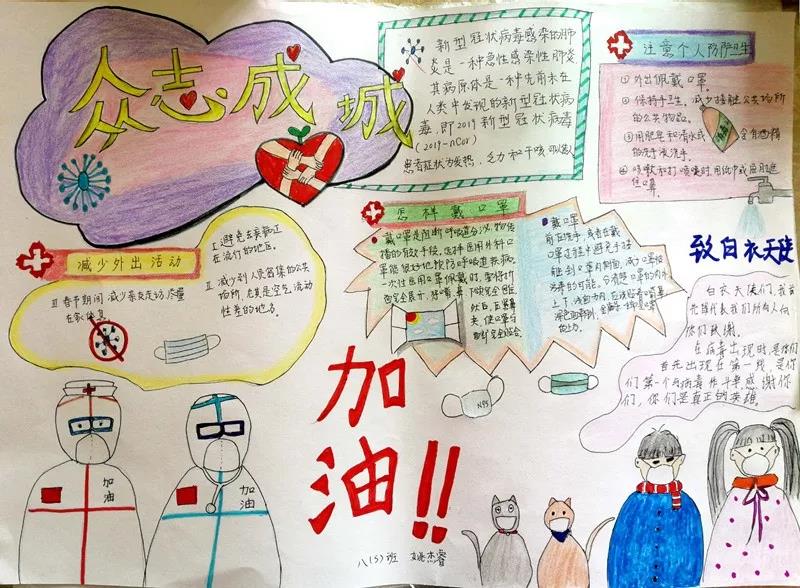 众志成城
新型冠状病毒感染的肺
炎是一种急性感染性肺炎
其病原体是一种先前未在
人类中发现的新型冠状病
毒,即2019新型冠状病毒
(2019-nCov)
患者症状为发热,乏力和干咳
注意个人防护卫生
①外出佩戴口罩。
②保持手卫生,减少接触公共场所
的公共物品。
③用肥皂和清水或
含有酒精
的洗手液洗手。
④咳嗽和打喷嚏时,用纸巾或
口罩。
减少外出活动
I 避免去疾病正
在流行的地区。
II 减少到人员密集的公共
场所,尤其是空气流动
性差的地方。
III 春节期间减少亲友走动尽量
在家休息
怎样戴口罩
戴口罩是阻断呼吸道分泌物传
播的有效手段,
戴口罩
前应洗手,或者在戴
口罩过程中避免手接
触到口罩内侧面,减少口罩被
污染的可能。分清楚口罩的内外
上下,
N95
致白衣天使
白衣天使们,我首
先谨代表我们所有人向
你们致谢。
在病毒出现时,是你们
首先出现在第一线,是你
们第一个与病毒作斗争,感谢你
们,你们是真正的英雄。
加油!!
加油
加油
八(5)班 姚杰睿